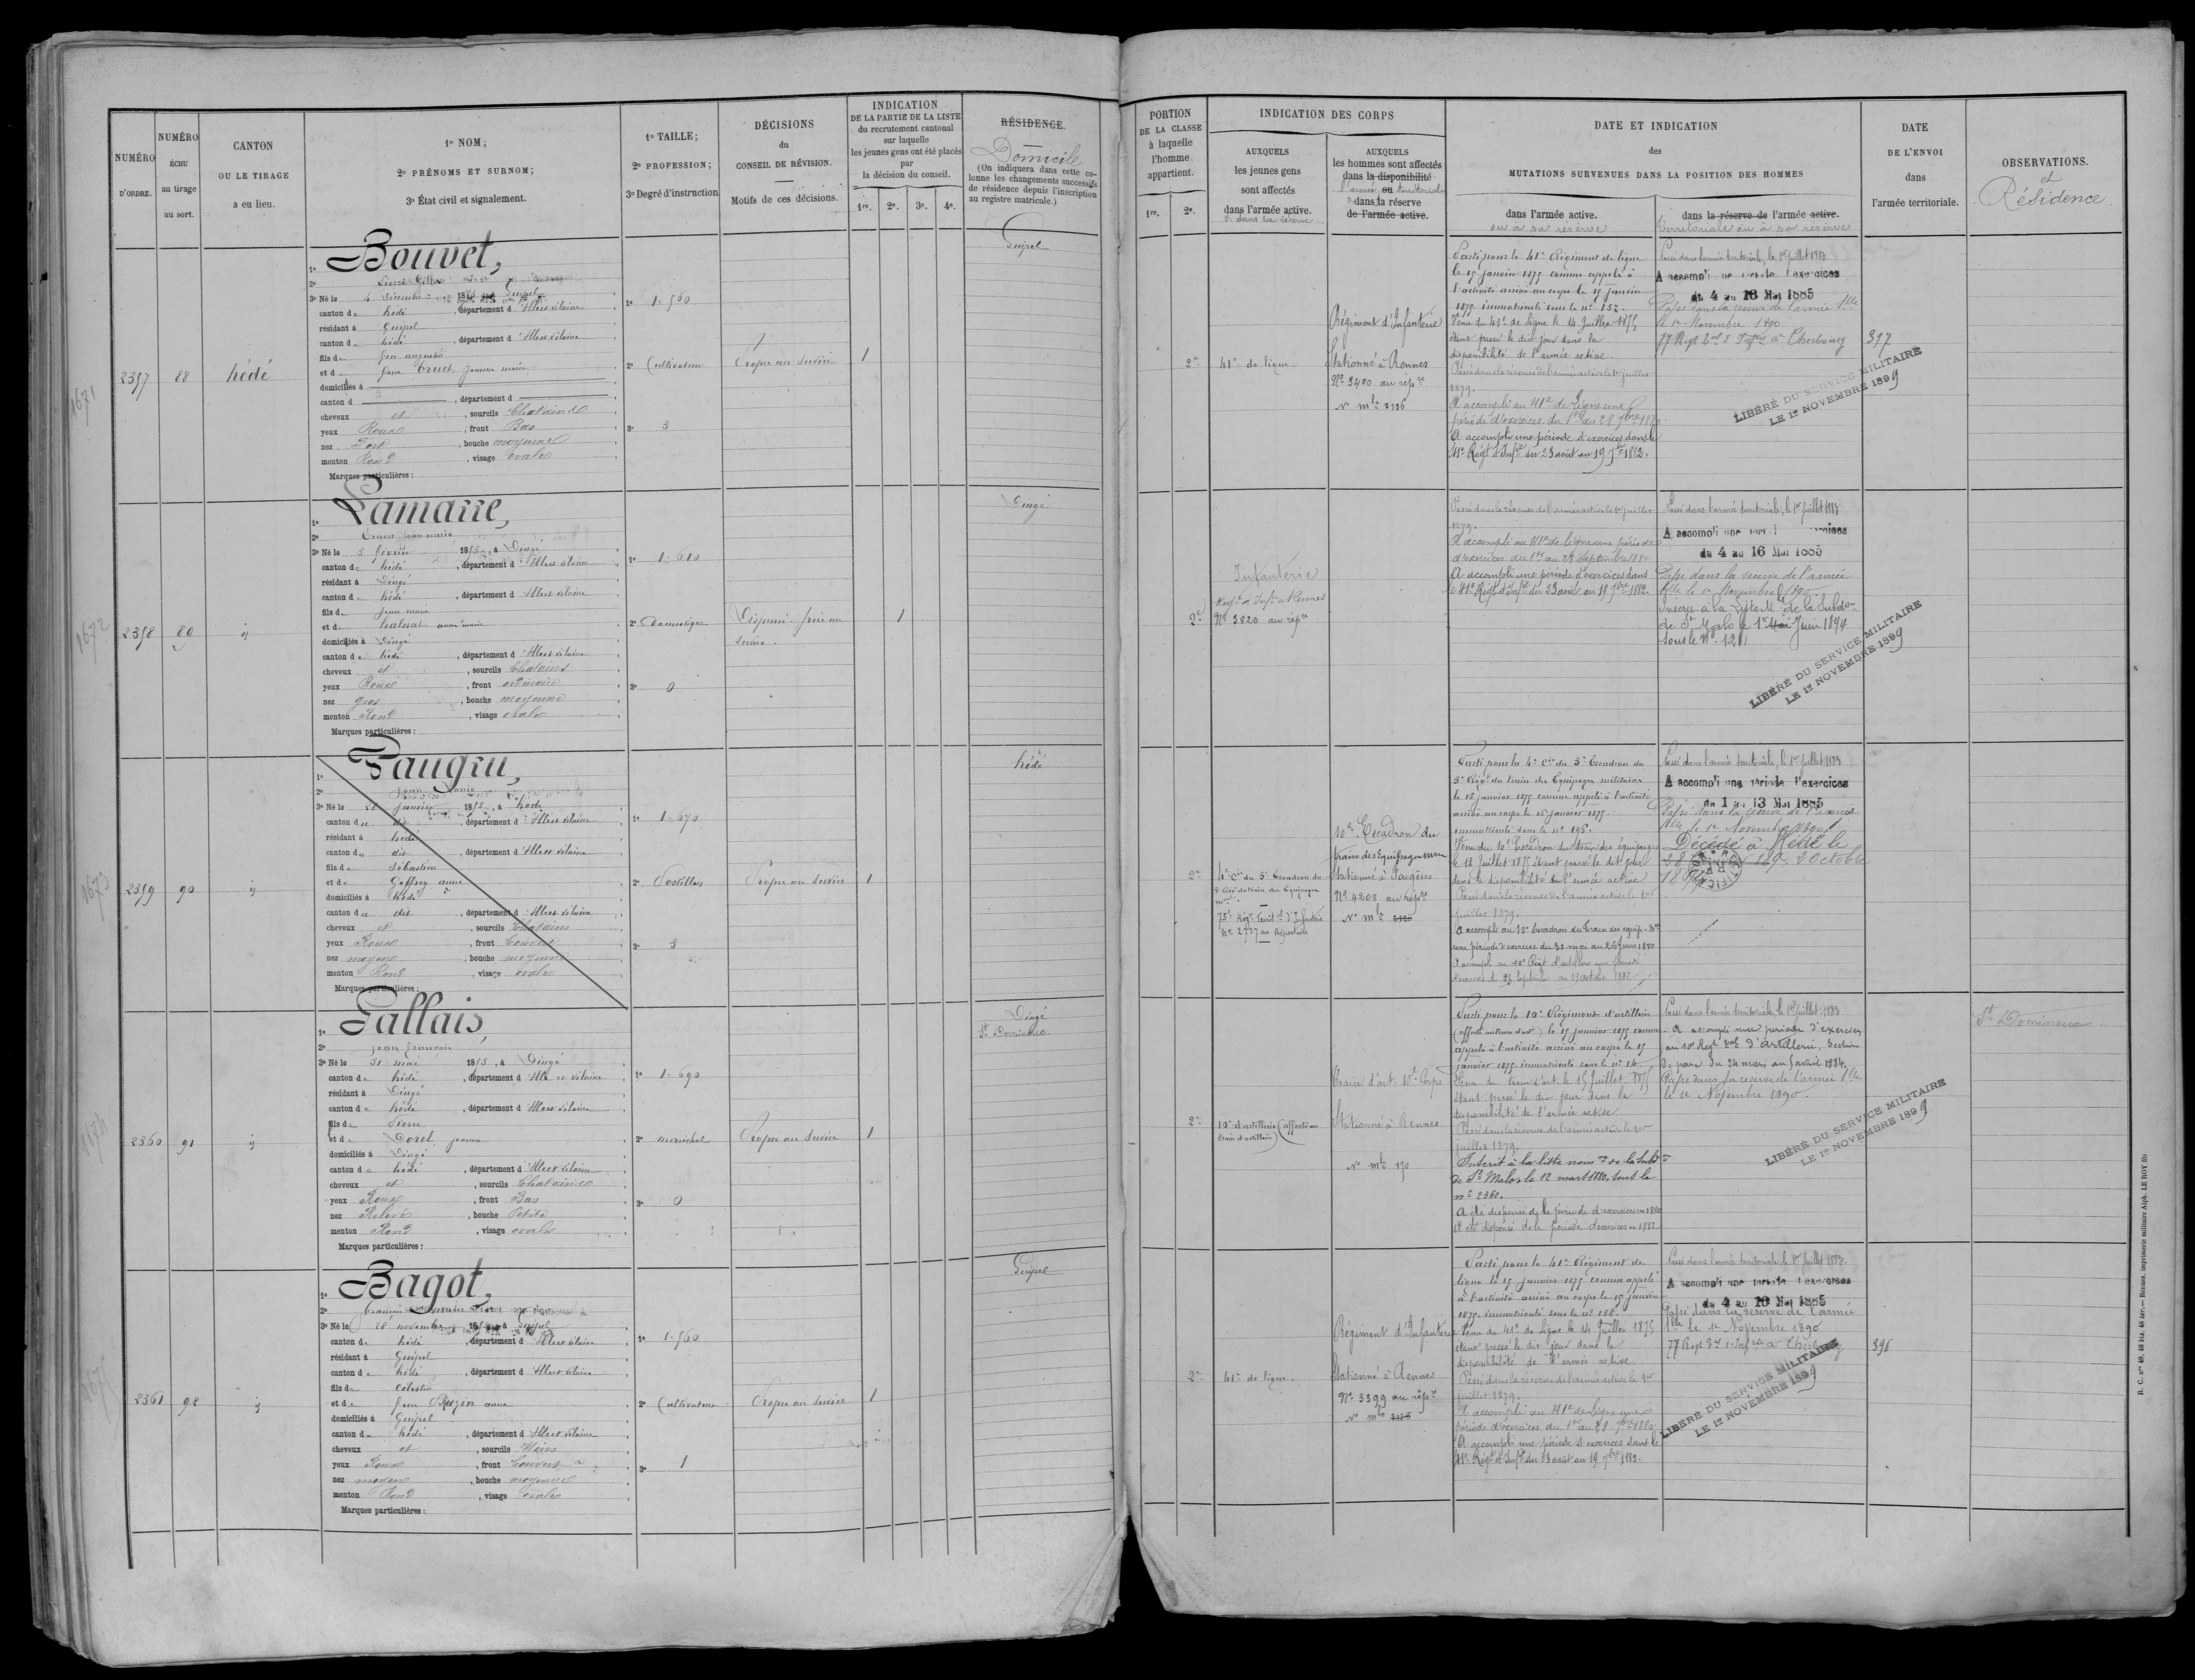 NUMÉRO
D'ORDRE.
NUMÉRO
ÉCHU
au tirage
au sort.
CANTON
OU LE TIRAGE
a eu lieu.
1º NOM;
2º PRÉNOMS ET SURNOM;
3º État civil et signalement.
1º TAILLE;
2º PROFESSION;
3º Degré d'instruction
DÉCISIONS
du
CONSEIL DE RÉVISION.
Motifs de ces décisions.
INDICATION
DE LA PARTIE DE LA LISTE
du recrutement cantonal
sur laquelle
les jeunes gens ont été placés
par
la décision du conseil.
1re. 2e. 3e. 4e.
RÉSIDENCE.
Domicile
(On indiquera dans cette co-
lonne les changements successifs
de résidence depuis l'inscription
au registre matricule.)
PORTION
DE LA CLASSE
à laquelle
l'homme
appartient.
1re. 2e.
INDICATION DES CORPS
AUXQUELS
les jeunes gens
sont affectés
dans l'armée active.
et dans la réserve
AUXQUELS
les hommes sont affectés
dans la disponibilité
l'armée ou territoriale
dans la réserve
de l'armée active.
DATE ET INDICATION
des
MUTATIONS SURVENUES DANS LA POSITION DES HOMMES
dans l'armée active.
ou a sa réserve
dans la réserve de l'armée active.
territoriale ou à sa réserve
DATE
DE L'ENVOI
dans
l'armée territoriale.
OBSERVATIONS.
et
Résidence
1671
2357 88 hédé
1º Bouvet,
2º Pierre Gilles
3º Né le 4 Décembre 1853 à Guipel
canton de hédé, département d'Ille et Vilaine
résidant à Guipel
canton de hédé, département d'Ille et Vilaine
fils de feu
et de feue Jeanne marie
domiciliés à
canton d , département d
cheveux et , sourcils Chatains
yeux Roux , front Bas
nez Fort , bouche moyenne
menton Rond , visage ovale
Marques particulières :
1º 1.560
2º Cultivateur
3º 3
Propre au service
1
Guipel
2e
41e de ligne
Régiment d'Infanterie
Stationné à Rennes
Nº 3400 au répre
Nº mle 2126
Parti pour le 41e Régiment de ligne
le 15 janvier 1875 comme appelé à
l'activité arrivé au corps le 15 janvier
1875 immatriculé sous le nº 137
Venu du 41e de ligne le 14 Juillet 1875
étant passé le dit jour dans la
disponibilité de l'armée active.
Passé dans la réserve de l'armée active le 1er juillet
1879.
A accompli au 41e de Ligne une
période d'exercices du 1er au 28 7bre 1880
A accompli une période d'exercices dans le
41e Régt d'Infie du 23 août au 19 7bre 1882.
Passé dans l'armée territoriale, le 1er juillet 1883
A accompli une période d'exercices
du 4 au 16 Mai 1885
Passé dans la réserve de l'armée Tlle
le 1er Novembre 1890
77 Regt à Cherbourg
LIBÉRÉ DU SERVICE MILITAIRE
LE 1er NOVEMBRE 1899
397
1672
2358 89 id
1º Lamarre,
2º Ernest jean marie
3º Né le 3 février 1853, à Dingé
canton de hédé, département d'Ille et Vilaine
résidant à Dingé
canton de hédé, département d'Ille et Vilaine
fils de jean marie
et de anne marie
domiciliés à Dingé
canton de hédé, département d'Ille et Vilaine
cheveux et , sourcils Chatains
yeux Roux , front ordinaire
nez gros , bouche moyenne
menton Rond , visage ovale
Marques particulières :
1º 1.610
2º Domestique
3º 0
Dispensé. frère au
service.
1
Dingé
2e
Infanterie
Régt d'Infie à Rennes
Nº 3820 au répre
Passé dans la réserve de l'armée active le 1er juillet
1879.
A accompli au 41e de ligne une période
d'exercices du 1er au 28 Septembre 1880
A accompli une période d'exercices dans
le 41e Régt d'Infie du 23 août au 19 7bre 1882.
Passé dans l'armée territoriale, le 1er juillet 1883
A accompli une d'exercices
du 4 au 16 Mai 1885
Passé dans la réserve de l'armée
Tlle le 1er Novembre 1890
Inscrit à la Liste Mle de la Subdon
de St Malo le 1er Mai Juin 1894
sous le Nº 1211
LIBÉRÉ DU SERVICE MILITAIRE
LE 1er NOVEMBRE 1899
1673
2359 90 id
1º Paugru,
2º Jean Louis
3º Né le 28 janvier 1853, à hédé
canton du dit , département d'Ille et Vilaine
résidant à hédé
canton du dit , département d'Ille et Vilaine
fils de Sébastien
et de Geffroy anne
domiciliés à hédé
canton du dit , département d'Ille et Vilaine
cheveux et , sourcils Chatains
yeux Roux , front Couvert
nez moyen , bouche moyenne
menton Rond , visage ovale
Marques particulières :
1º 1.670
2º Postillon
3º 3
Propre au service
1
hédé
2e
4e Cie du 3e Escadron du
Train des Equipages
75e Régt Territal d'Infanterie
Nº 2737 au Répertoire
10e Escadron du
train des Equipages mres
Stationné à Fougères
Nº 4208 au répre
Nº mle 2120
Parti pour la 4e Cie du 3e Escadron du
3e Régt du train des Equipages militaires
le 18 janvier 1875 comme appelé à l'activité
arrivé au corps le 15 janvier 1875
immatriculé sous le nº 195.
Venu du 10e Escadron du train des équipages
le 12 Juillet 1875 étant passé le dit jour
dans la disponibilité de l'armée active
Passé dans la réserve de l'armée active le 1er
juillet 1879.
A accompli au 10e Escadron du Train des équip. mres
une période d'exercices du 31 mai au 26 Juin 1880
Passé dans l'armée territoriale, le 1er juillet 1883
A accompli une période d'exercices
du 1 au 13 Mai 1885
Passé dans la réserve de l'armée
Tlle le 1er Novembre 1890
Décédé à Hédé le
1674
2360 91 id
1º Gallais,
2º jean françois
3º Né le 31 mai 1853, à Dingé
canton de hédé, département d'Ille et Vilaine
résidant à Dingé
canton de hédé, département d'Ille et Vilaine
fils de Pierre
et de Dorel jeanne
domiciliés à Dingé
canton de hédé, département d'Ille et Vilaine
cheveux et , sourcils Chatains
yeux Roux , front Bas
nez Relevé , bouche Petite
menton Rond , visage ovale
Marques particulières :
1º 1.690
2º maréchal
3º 0
Propre au service
1
Dingé
St Domineuc
2e
10e d'artillerie (affecté au
train d'artillerie)
Train d'art. 10e Corps
Stationné à Rennes
Nº mle 170
Parti pour le 10e Régiment d'artillerie
(affecté au train d'art) le 15 janvier 1875 comme
appelé à l'activité arrivé au corps le 15
janvier 1875 immatriculé sous le nº 16
Venu du train d'art. le 15 Juillet 1875
étant passé le dit jour dans la
disponibilité de l'armée active
Passé dans la réserve de l'armée active le 1er
juillet 1879.
Inscrit à la liste nomve de la Subdon
de St Malo, le 12 mars 1880, sous le
nº 2360.
A été dispensé de la période d'exercices en 1880
A été dispensé de la période d'exercices en 1882
Passé dans l'armée territoriale, le 1er juillet 1883
A accompli une période d'exercices
au 10e Regt d'Artillerie, Section
de parc du 24 mars au 5 avril 1884.
Passé dans la réserve de l'armée Tlle
le 1er Novembre 1890.
LIBÉRÉ DU SERVICE MILITAIRE
LE 1er NOVEMBRE 1899
St Domineuc
1675
2361 92 id
1º Bagot,
2º François
3º Né le 28 novembre 1853 à Guipel
canton de hédé, département d'Ille et Vilaine
résidant à Guipel
canton de hédé, département d'Ille et Vilaine
fils de Célestin
et de feue anne
domiciliés à Guipel
canton de hédé, département d'Ille et Vilaine
cheveux et , sourcils Noirs
yeux Roux , front Couvert
nez moyen , bouche moyenne
menton Rond , visage ovale
Marques particulières :
1º 1.560
2º Cultivateur
3º 1
Propre au service
1
Guipel
2e
41e de ligne.
Régiment d'Infanterie
Stationné à Rennes
Nº 3399 au répre
Nº mle 2125
Parti pour le 41e Régiment de
ligne le 15 janvier 1875 comme appelé
à l'activité arrivé au corps le 15 janvier
1875 immatriculé sous le nº 138
Venu du 41e de ligne le 14 Juillet 1875
étant passé le dit jour dans la
disponibilité de l'armée active
Passé dans la réserve de l'armée active le 1er
juillet 1879.
A accompli au 41e de Ligne une
période d'exercices du 1er au 28 7bre 1880.
A accompli une période d'exercices dans le
41e Régt d'Infie du 23 août au 19 7bre 1882.
Passé dans l'armée territoriale le 1er juillet 1883.
A accompli une période d'exercices
du 4 au 16 Mai 1885
Passé dans la réserve de l'armée
Tlle le 1er Novembre 1890
77 Regt à Cherbourg
LIBÉRÉ DU SERVICE MILITAIRE
LE 1er NOVEMBRE 1899
396
R. C. nos 48, 48 bis, 48 ter.— Rennes, imprimerie militaire Alph. LE ROY fils